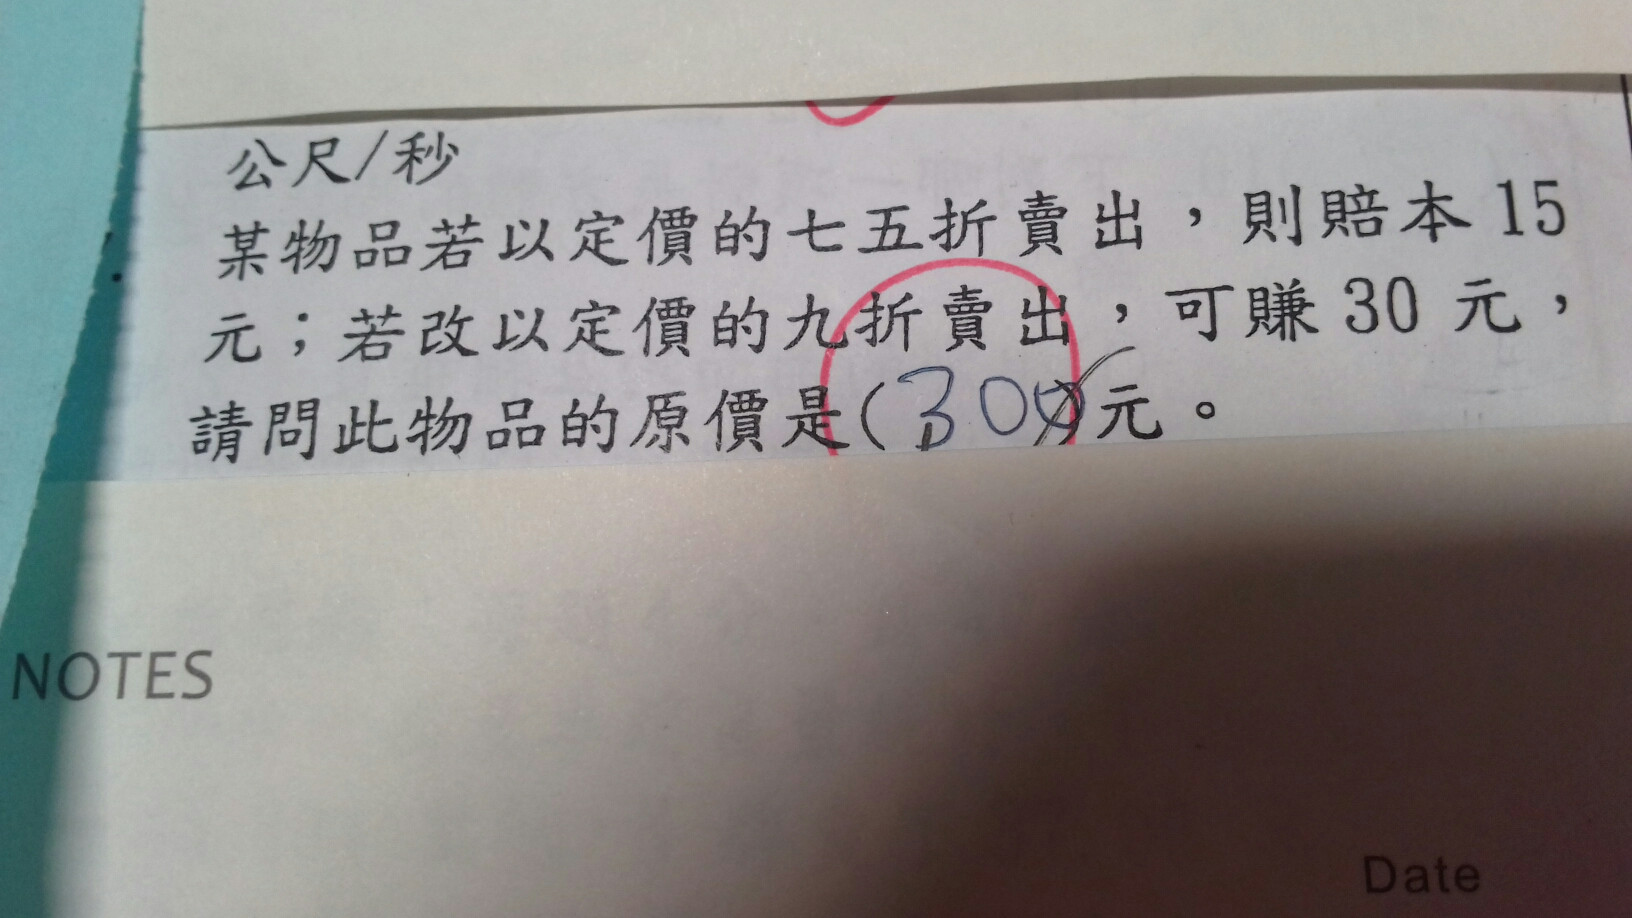 公尺/秒
某物品若以定價的七五折賣出，則賠本 15
元；若改以定價的九折賣出，可賺 30 元，
請問此物品的原價是(300)元。
NOTES
Date